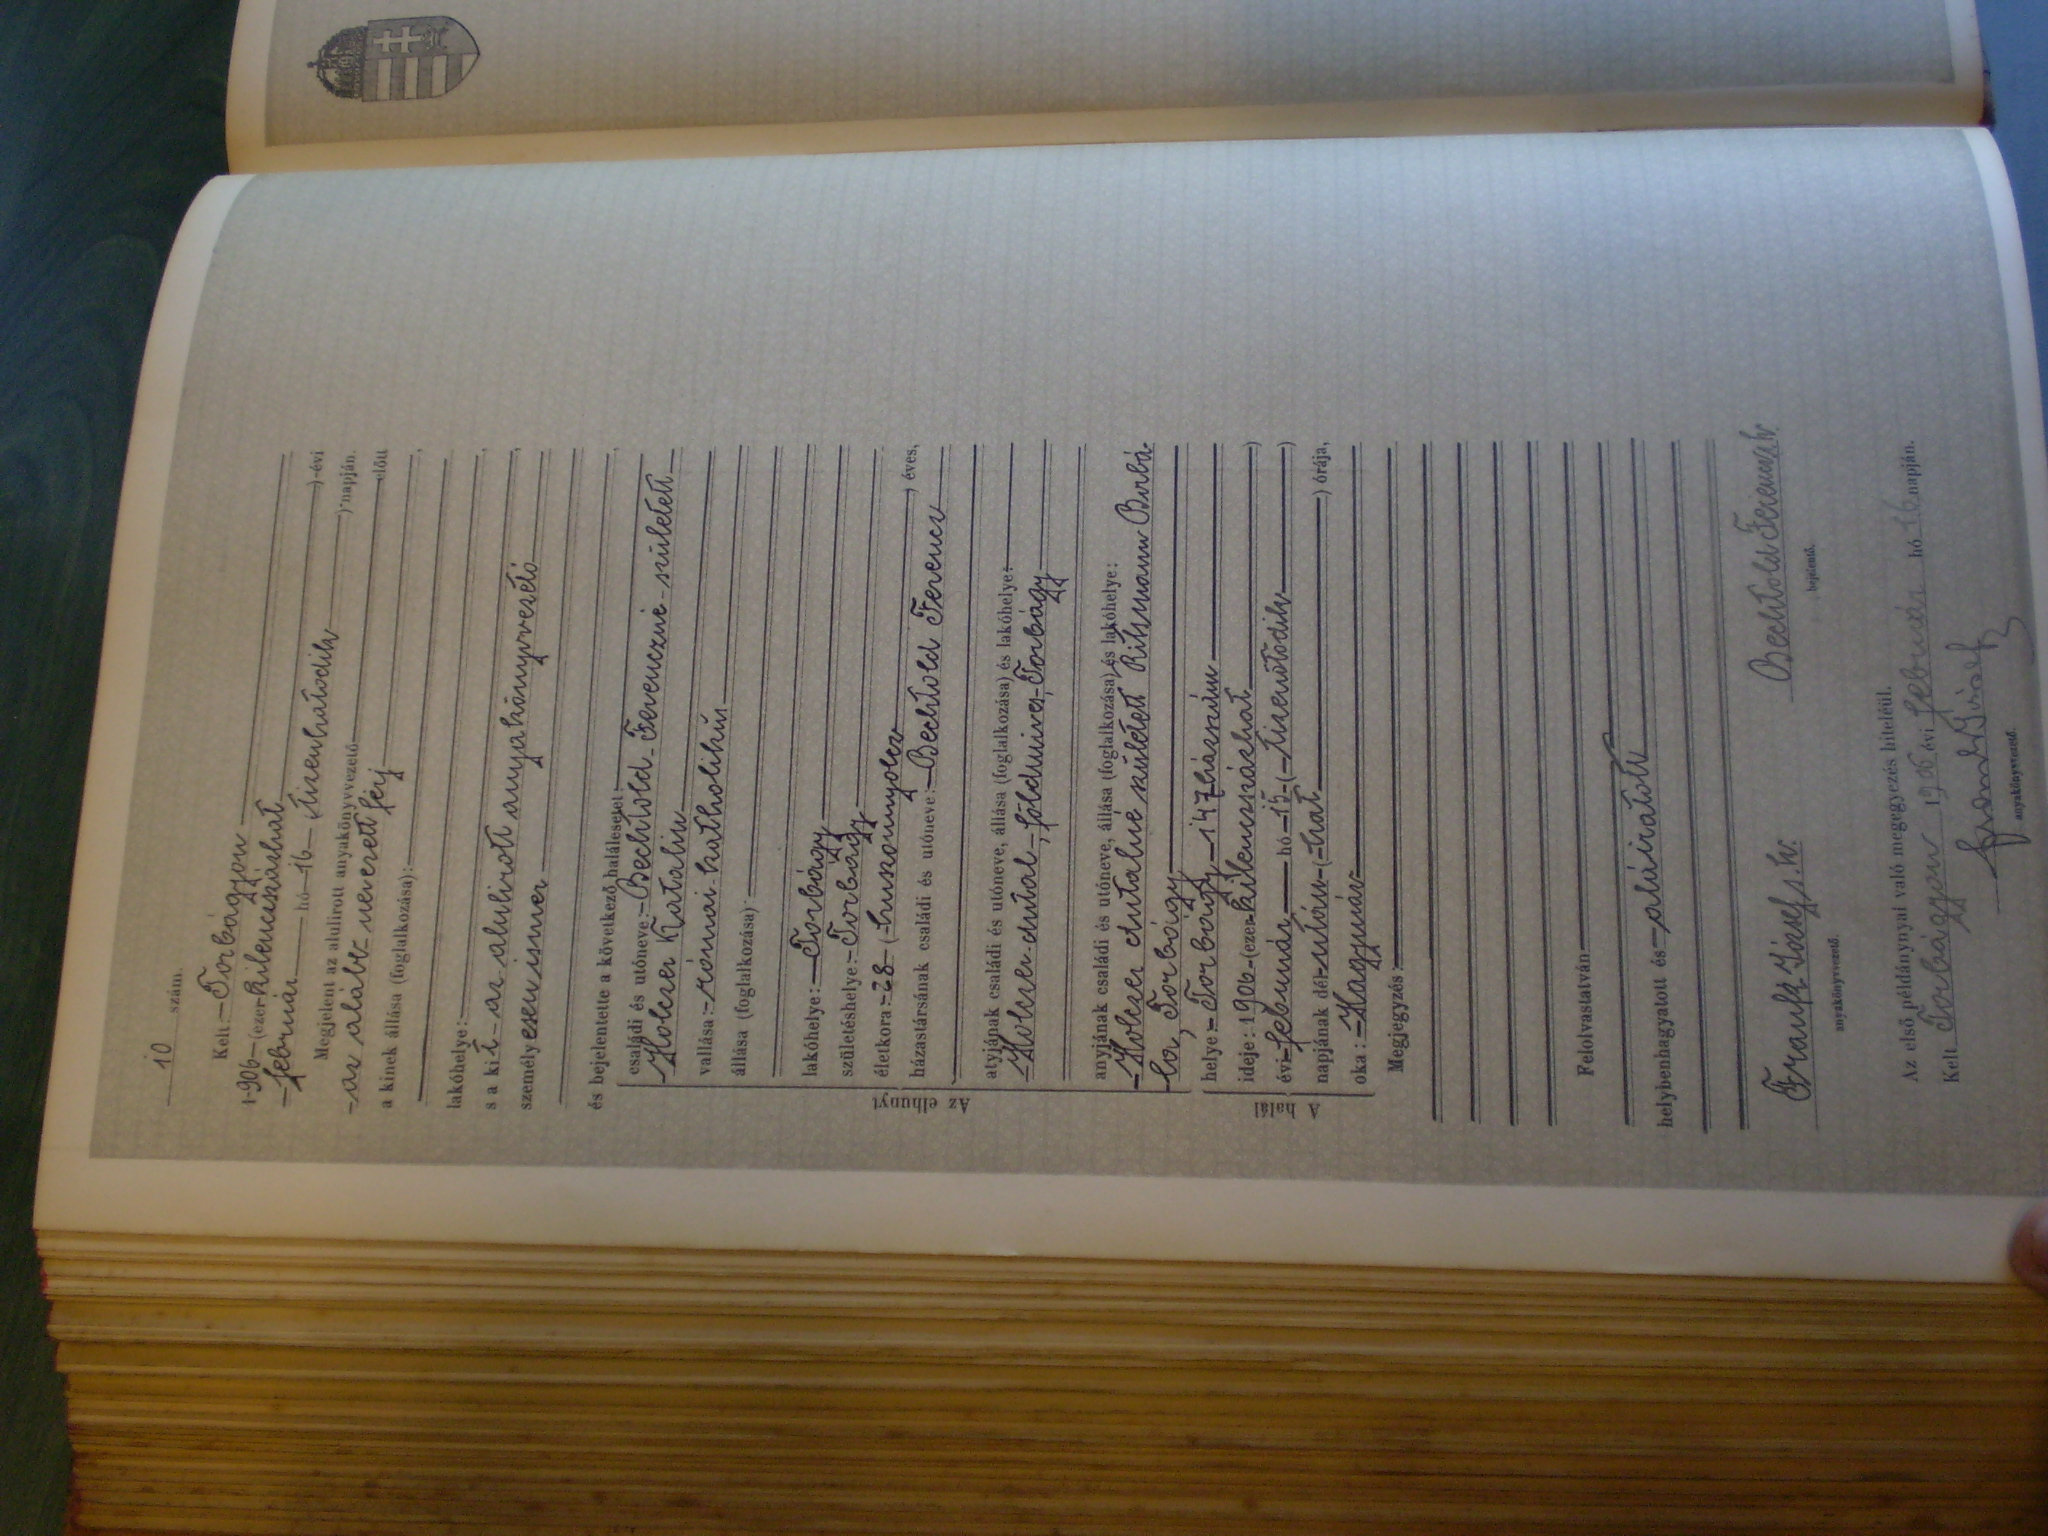 10 szám.
Kelt: Torbágyon
1906 (ezerkilencszázhat) -évi
február hó 16 (tizenhatodik) napján.
Megjelent az alulirott anyakönyvvezető előtt
az alább nevezett férj
a kinek állása (foglalkozása):
lakóhelye:
s a kit az alulirott anyakönyvvezető
személyesen ismer
és bejelentette a következő halálesetet:
Az elhunyt
családi és utóneve: Bechtold Ferenczné született
Holczer Katalin
vallása: római katholikus
állása (foglalkozása):
lakóhelye: Torbágy
születéshelye: Torbágy
életkora: 28 (huszonnyolcz) éves,
házastársának családi és utóneve: Bechtold Ferencz
atyjának családi és utóneve, állása (foglalkozása) és lakóhelye:
Holczer Antal, földmives, Torbágy
anyjának családi és utóneve, állása (foglalkozása) és lakóhelye:
Holczer Antalné született Ritsmann Borbá-
la, Torbágy
A halál
helye: Torbágy 147 házszám
ideje: 1906 (ezerkilencszázhat)
évi február hó 15 (tizenötödik)
napjának dél-után (-hat) órája,
oka: Hagymáz
Megjegyzés:
Felolvastatván
helybenhagyatott és aláiratott
Frankf József s. k.
anyakönyvvezető.
Bechtold Ferencz s. k.
bejelentő.
Az első példánynyal való megegyezés hiteléül.
Kelt Torbágyon 1906 évi február hó 16 napján.
József
anyakönyvvezető.